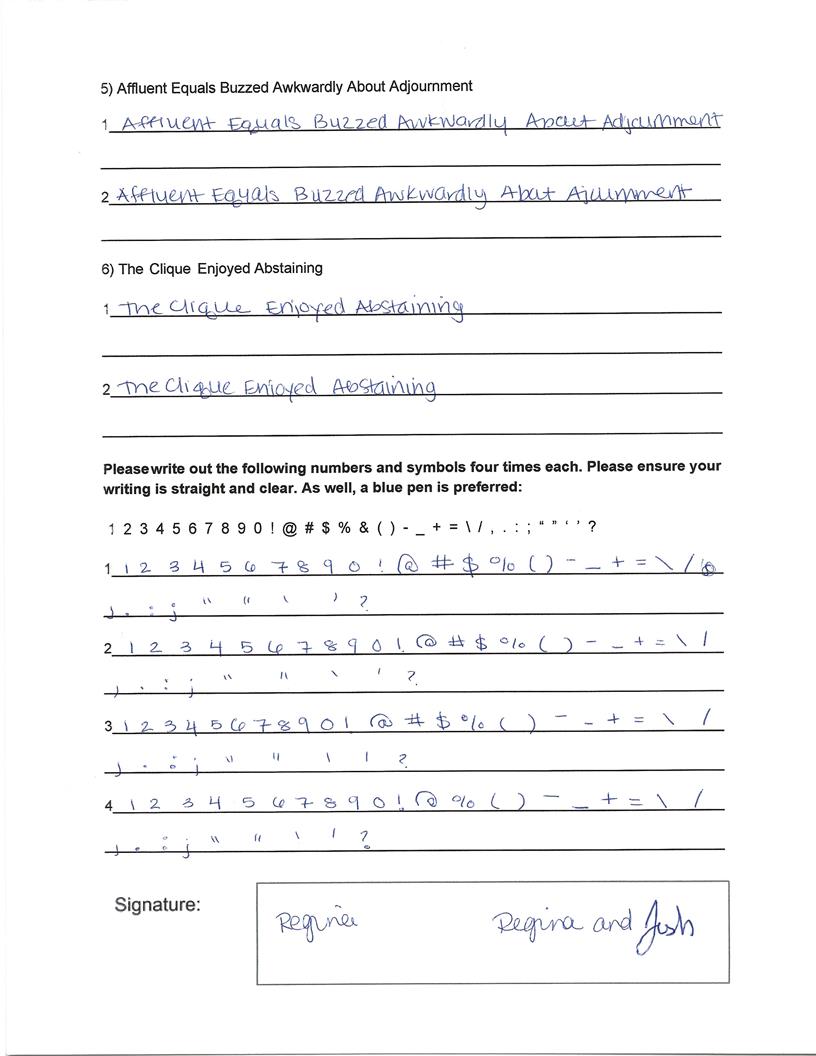 5) Affluent Equals Buzzed Awkwardly About Adjournment
1 Affluent Equals Buzzed Awkwardly About Adjournment
2 Affluent Equals Buzzed Awkwardly Abut Ajournment
6) The Clique Enjoyed Abstaining
1 The Clique Enjoyed Abstaining
2 The Clique Enjoyed Abstaining
Please write out the following numbers and symbols four times each. Please ensure your
writing is straight and clear. As well, a blue pen is preferred:
1 2 3 4 5 6 7 8 9 0 ! @ # $ % & ( ) - _ + = \ / , . : ; “ ” ‘ ’ ?
1 1 2 3 4 5 6 7 8 9 0 ! @ # $ % ( ) - _ + = \ /
, . : ; “ ” ‘ ’ ?
2 1 2 3 4 5 6 7 8 9 0 ! @ # $ % ( ) - _ + = \ /
, . : ; “ ” ‘ ’ ?
3 1 2 3 4 5 6 7 8 9 0 ! @ # $ % ( ) - _ + = \ /
, . : ; “ ” ‘ ’ ?
4 1 2 3 4 5 6 7 8 9 0 ! @ % ( ) - _ + = \ /
, . : ; “ ” ‘ ’ ?
Signature: Regina Regina and Josh